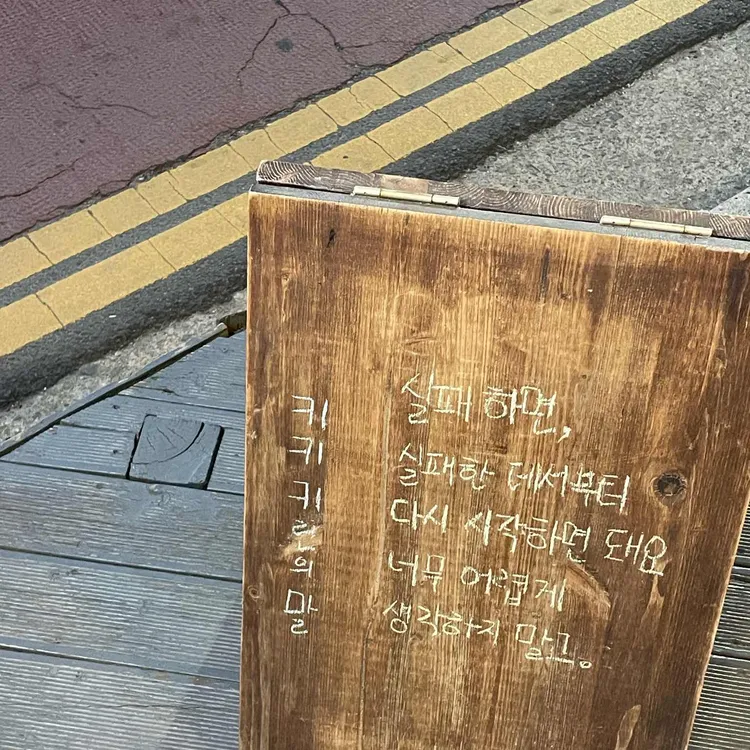 키키키린의말
실패하면,
실패한 데서부터
다시 시작하면 돼요
너무 어렵게
생각하지 말고.